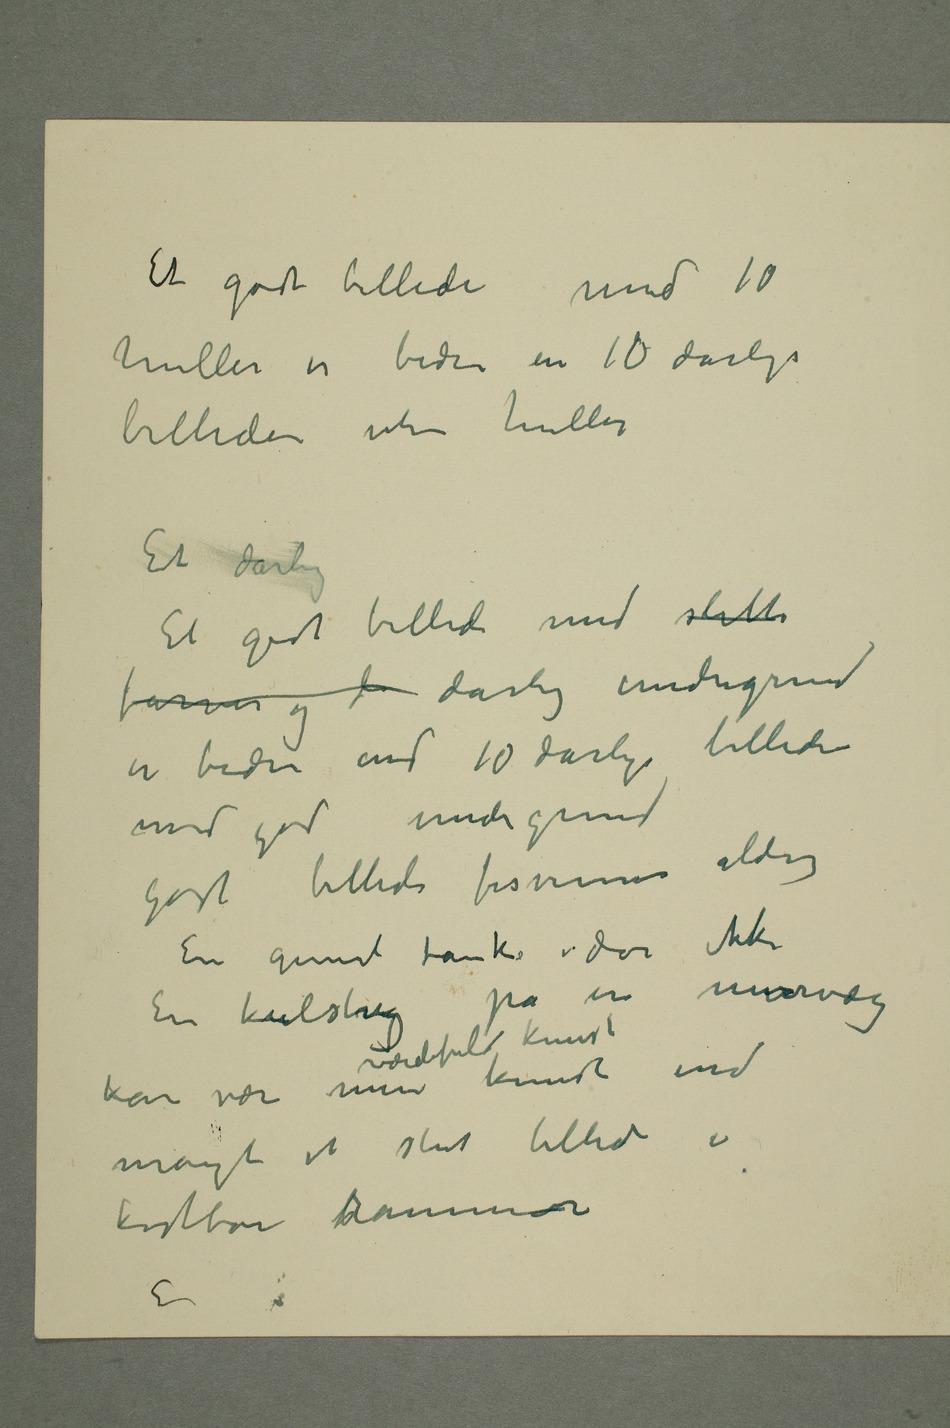 Et godt billede med 10
huller er bedre en 10 darlige
billeder uten huller
Et darlig
Et godt billede med slette
farver og da darlig undergrund
er bedre end 10 darlige billeder
med god undergrund
godt billede forsvinner aldrig
En genial tanke dør ikke
En kulstreg på en murvæg
værdifuld kunst
kan være mere kunst end
mangt et slet billede i
kostbar ramme
E